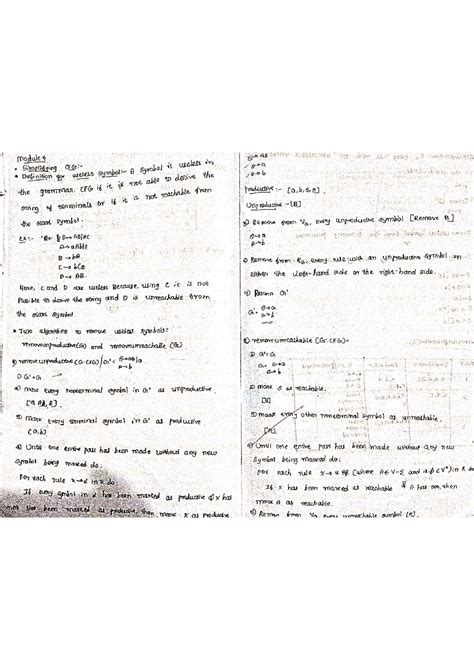 Module 4
• Simplifying CFG:-
• Definition for useless symbol:- A symbol is useless in
the grammar CFG if it is not able to derive the
string of terminals or if it is not reachable from
the start symbol.
Ex:- R= { S→AB|AC
A→aAb|ε
B→bA
C→bCa
D→AB}
Here, C and D are useless because using C it is not
possible to derive the string and D is unreachable from
the start symbol.
• Two algorithm to remove useless symbols:
removeunproductive(G) and removeunreachable (G).
1) removeunproductive (G:CFG)
1) G'=G
2) mark every nonterminal symbol in G' as unproductive
3) mark every terminal symbol in G' as productive
(a,b)
4) Until one entire pass has been made without any new
symbol being marked do:
For each rule X→α in R do
If every symbol in α has been marked as productive & X has
not yet been marked as productive then, mark X as productive
S→AB
S→a
A→b
Productive :- [a,b,S,A]
Unproductive :-[B]
5) Remove from VG, every unproductive symbol [Remove B]
S→a
A→b
6) Remove from RG, every rule with an unproductive symbol on
either the left-hand side or the right-hand side.
7) Return G'
G'= S→a
A→b
2) removeunreachable (G:CFG)
1) G'=G
G= S→a
A→b
2) mark S as reachable.
[S]
3) mark every other nonterminal symbol as unreachable.
[A]
4) Until one entire pass has been made without any new
symbol being marked do:
For each rule X→αAβ (where A∈V-Σ and α,β∈V*) in R do
If X has been marked as reachable & A has not, then
mark A as reachable.
5) Remove from VG every unreachable symbol